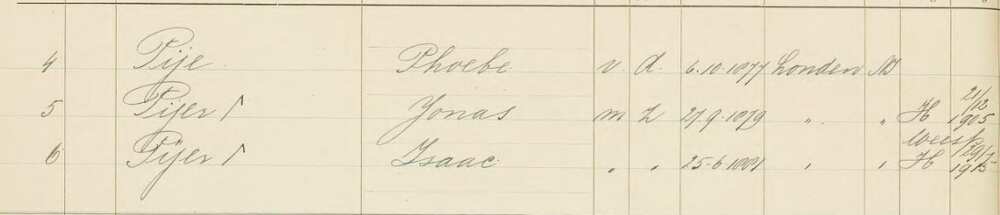 4 Pije Phoebe v. d. 6.10.1877 Londen NI
5 Pijer Jonas m Z 27.9.1879 " " H 21/12 1905
6 Pijer Isaac " " 25-6 " " H 1915